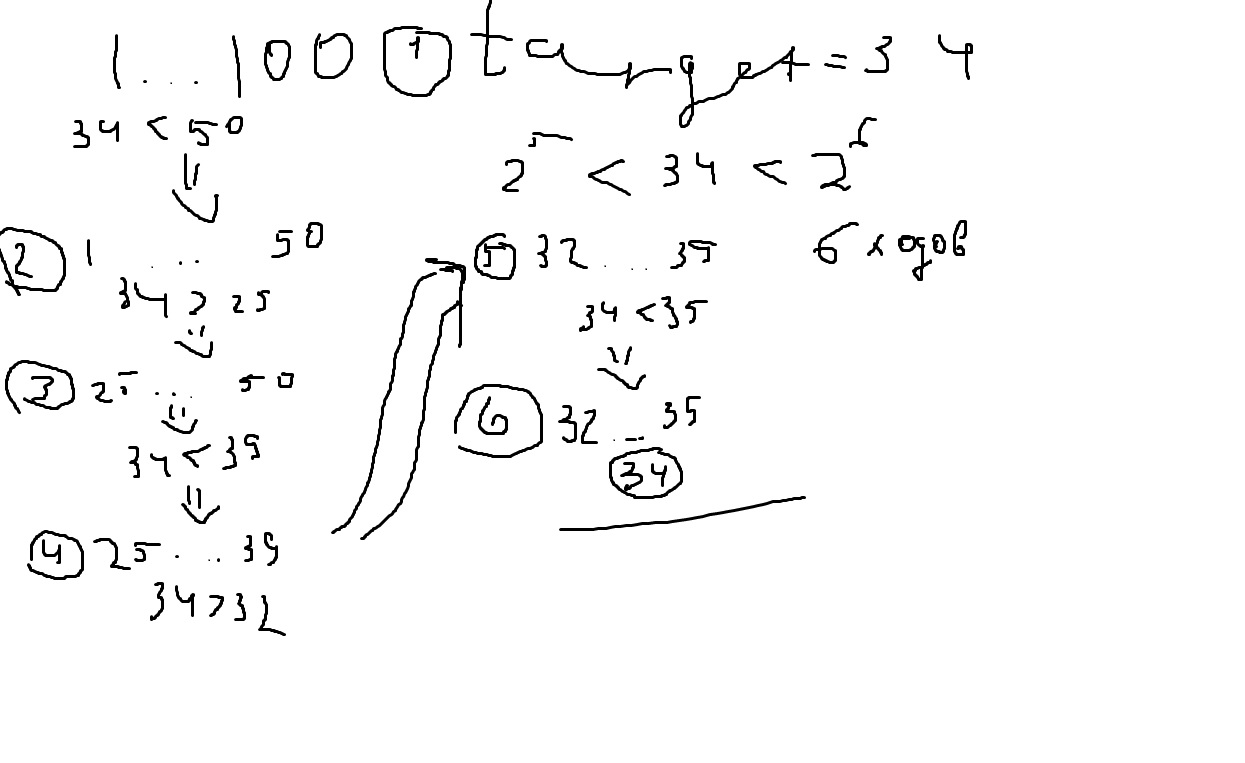 1 ... 100 1 target = 34
34 < 50
2 1 ... 50
34 > 25
3 25 ... 50
34 < 39
4 25 ... 39
34 > 32
2^5 < 34 < 2^6
6 ходов
5 32 ... 39
34 < 35
6 32 ... 35
34